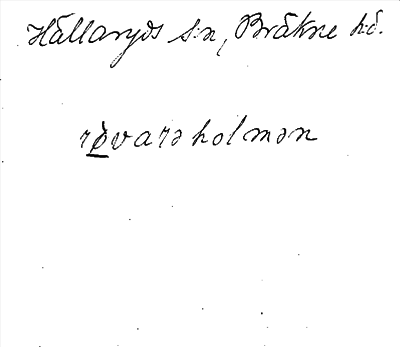 Hällaryds s:n, Bräkne hd.
rö̀varəholmən